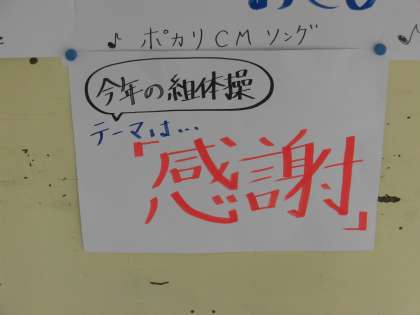 ♪ ポカリCMソング
今年の組体操
テーマは…
「感謝」